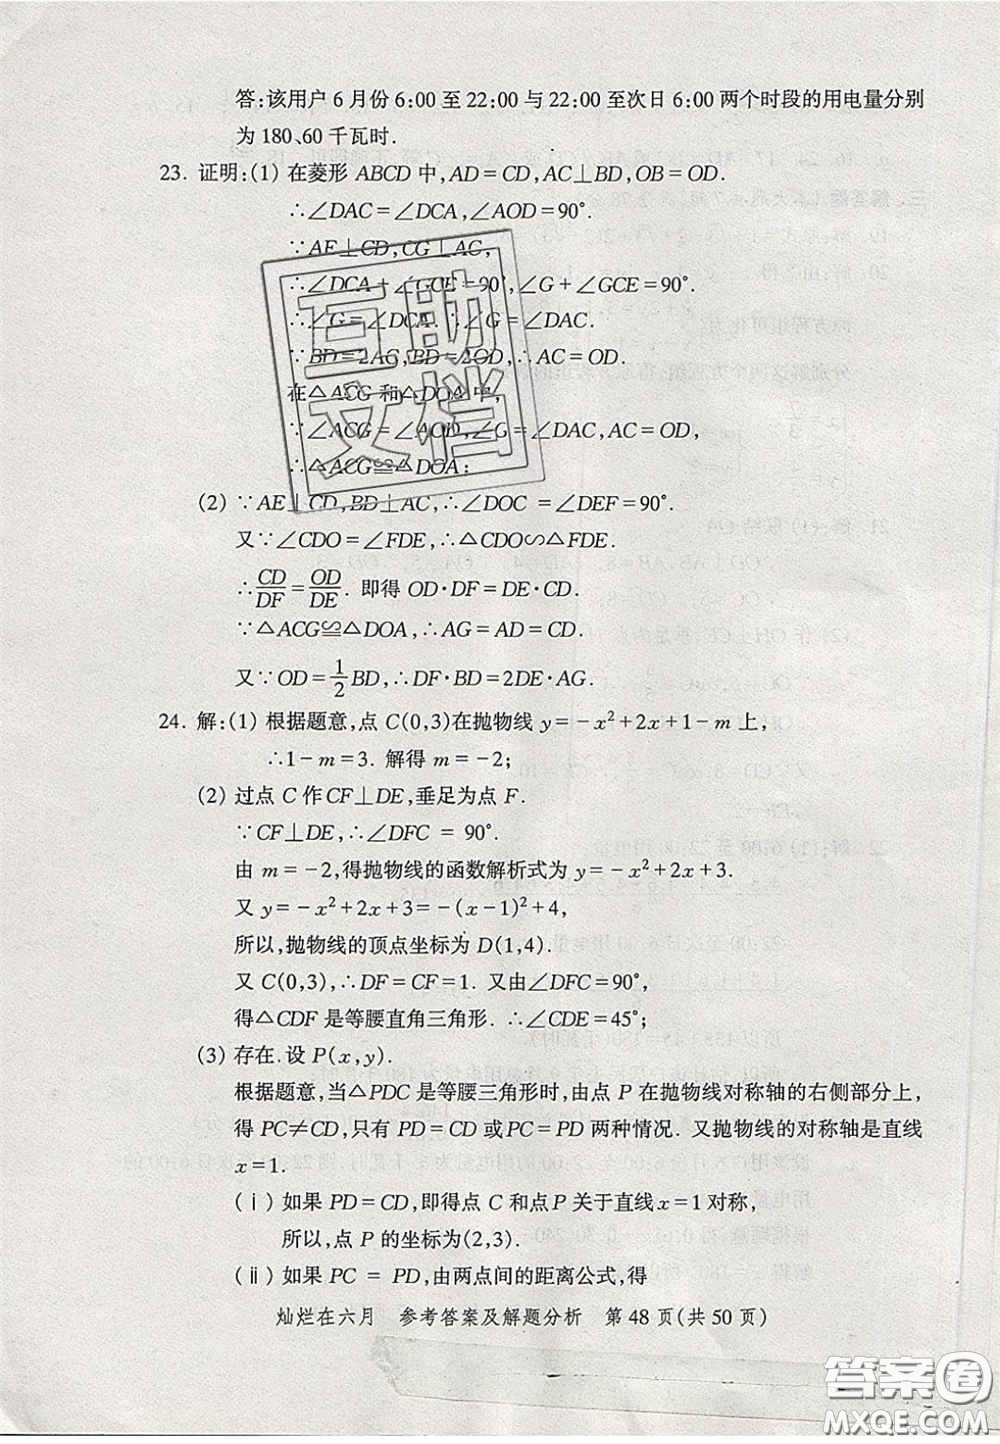 答:该用户 6 月份 6:00 至 22:00 与 22:00 至次日 6:00 两个时段的用电量分别
为 180、60 千瓦时.
23. 证明:(1) 在菱形 ABCD 中,AD=CD,AC⊥BD,OB=OD.
∴∠DAC=∠DCA,∠AOD=90°.
∵AE⊥CD,CG⊥AC,
∴∠DCA+∠GCE=90°,∠G+∠GCE=90°.
∴∠G=∠DCA.∴∠G=∠DAC.
∵BD=2AC,BD=2OD,∴AC=OD.
在△ACG 和△DOA 中,
∵∠ACG=∠AOD,∠G=∠DAC,AC=OD,
∴△ACG≌△DOA;
(2) ∵AE⊥CD,BD⊥AC,∴∠DOC =∠DEF=90°.
又∵∠CDO=∠FDE,∴△CDO∽△FDE.
∴CD/DF=OD/DE. 即得 OD·DF=DE·CD.
∵△ACG≌△DOA,∴AG=AD=CD.
又∵OD=1/2BD,∴DF·BD=2DE·AG.
24. 解:(1) 根据题意,点 C(0,3)在抛物线 y=-x²+2x+1-m 上,
∴1-m=3. 解得 m=-2;
(2) 过点 C 作 CF⊥DE,垂足为点 F.
∵CF⊥DE,∴∠DFC = 90°.
由 m=-2,得抛物线的函数解析式为 y=-x²+2x+3.
又 y=-x²+2x+3=-(x-1)²+4,
所以,抛物线的顶点坐标为 D(1,4).
又 C(0,3),∴DF=CF=1. 又由∠DFC=90°,
得△CDF 是等腰直角三角形. ∴∠CDE=45°;
(3) 存在. 设 P(x,y).
根据题意,当△PDC 是等腰三角形时,由点 P 在抛物线对称轴的右侧部分上,
得 PC≠CD,只有 PD=CD 或PC=PD 两种情况. 又抛物线的对称轴是直线
x=1.
(ⅰ) 如果 PD=CD,即得点 C 和点 P 关于直线 x=1 对称,
所以,点 P 的坐标为(2,3).
(ⅱ) 如果 PC = PD,由两点间的距离公式,得
灿烂在六月 参考答案及解题分析 第 48 页(共 50 页)
互助
文档
答案圈
MXQE.COM